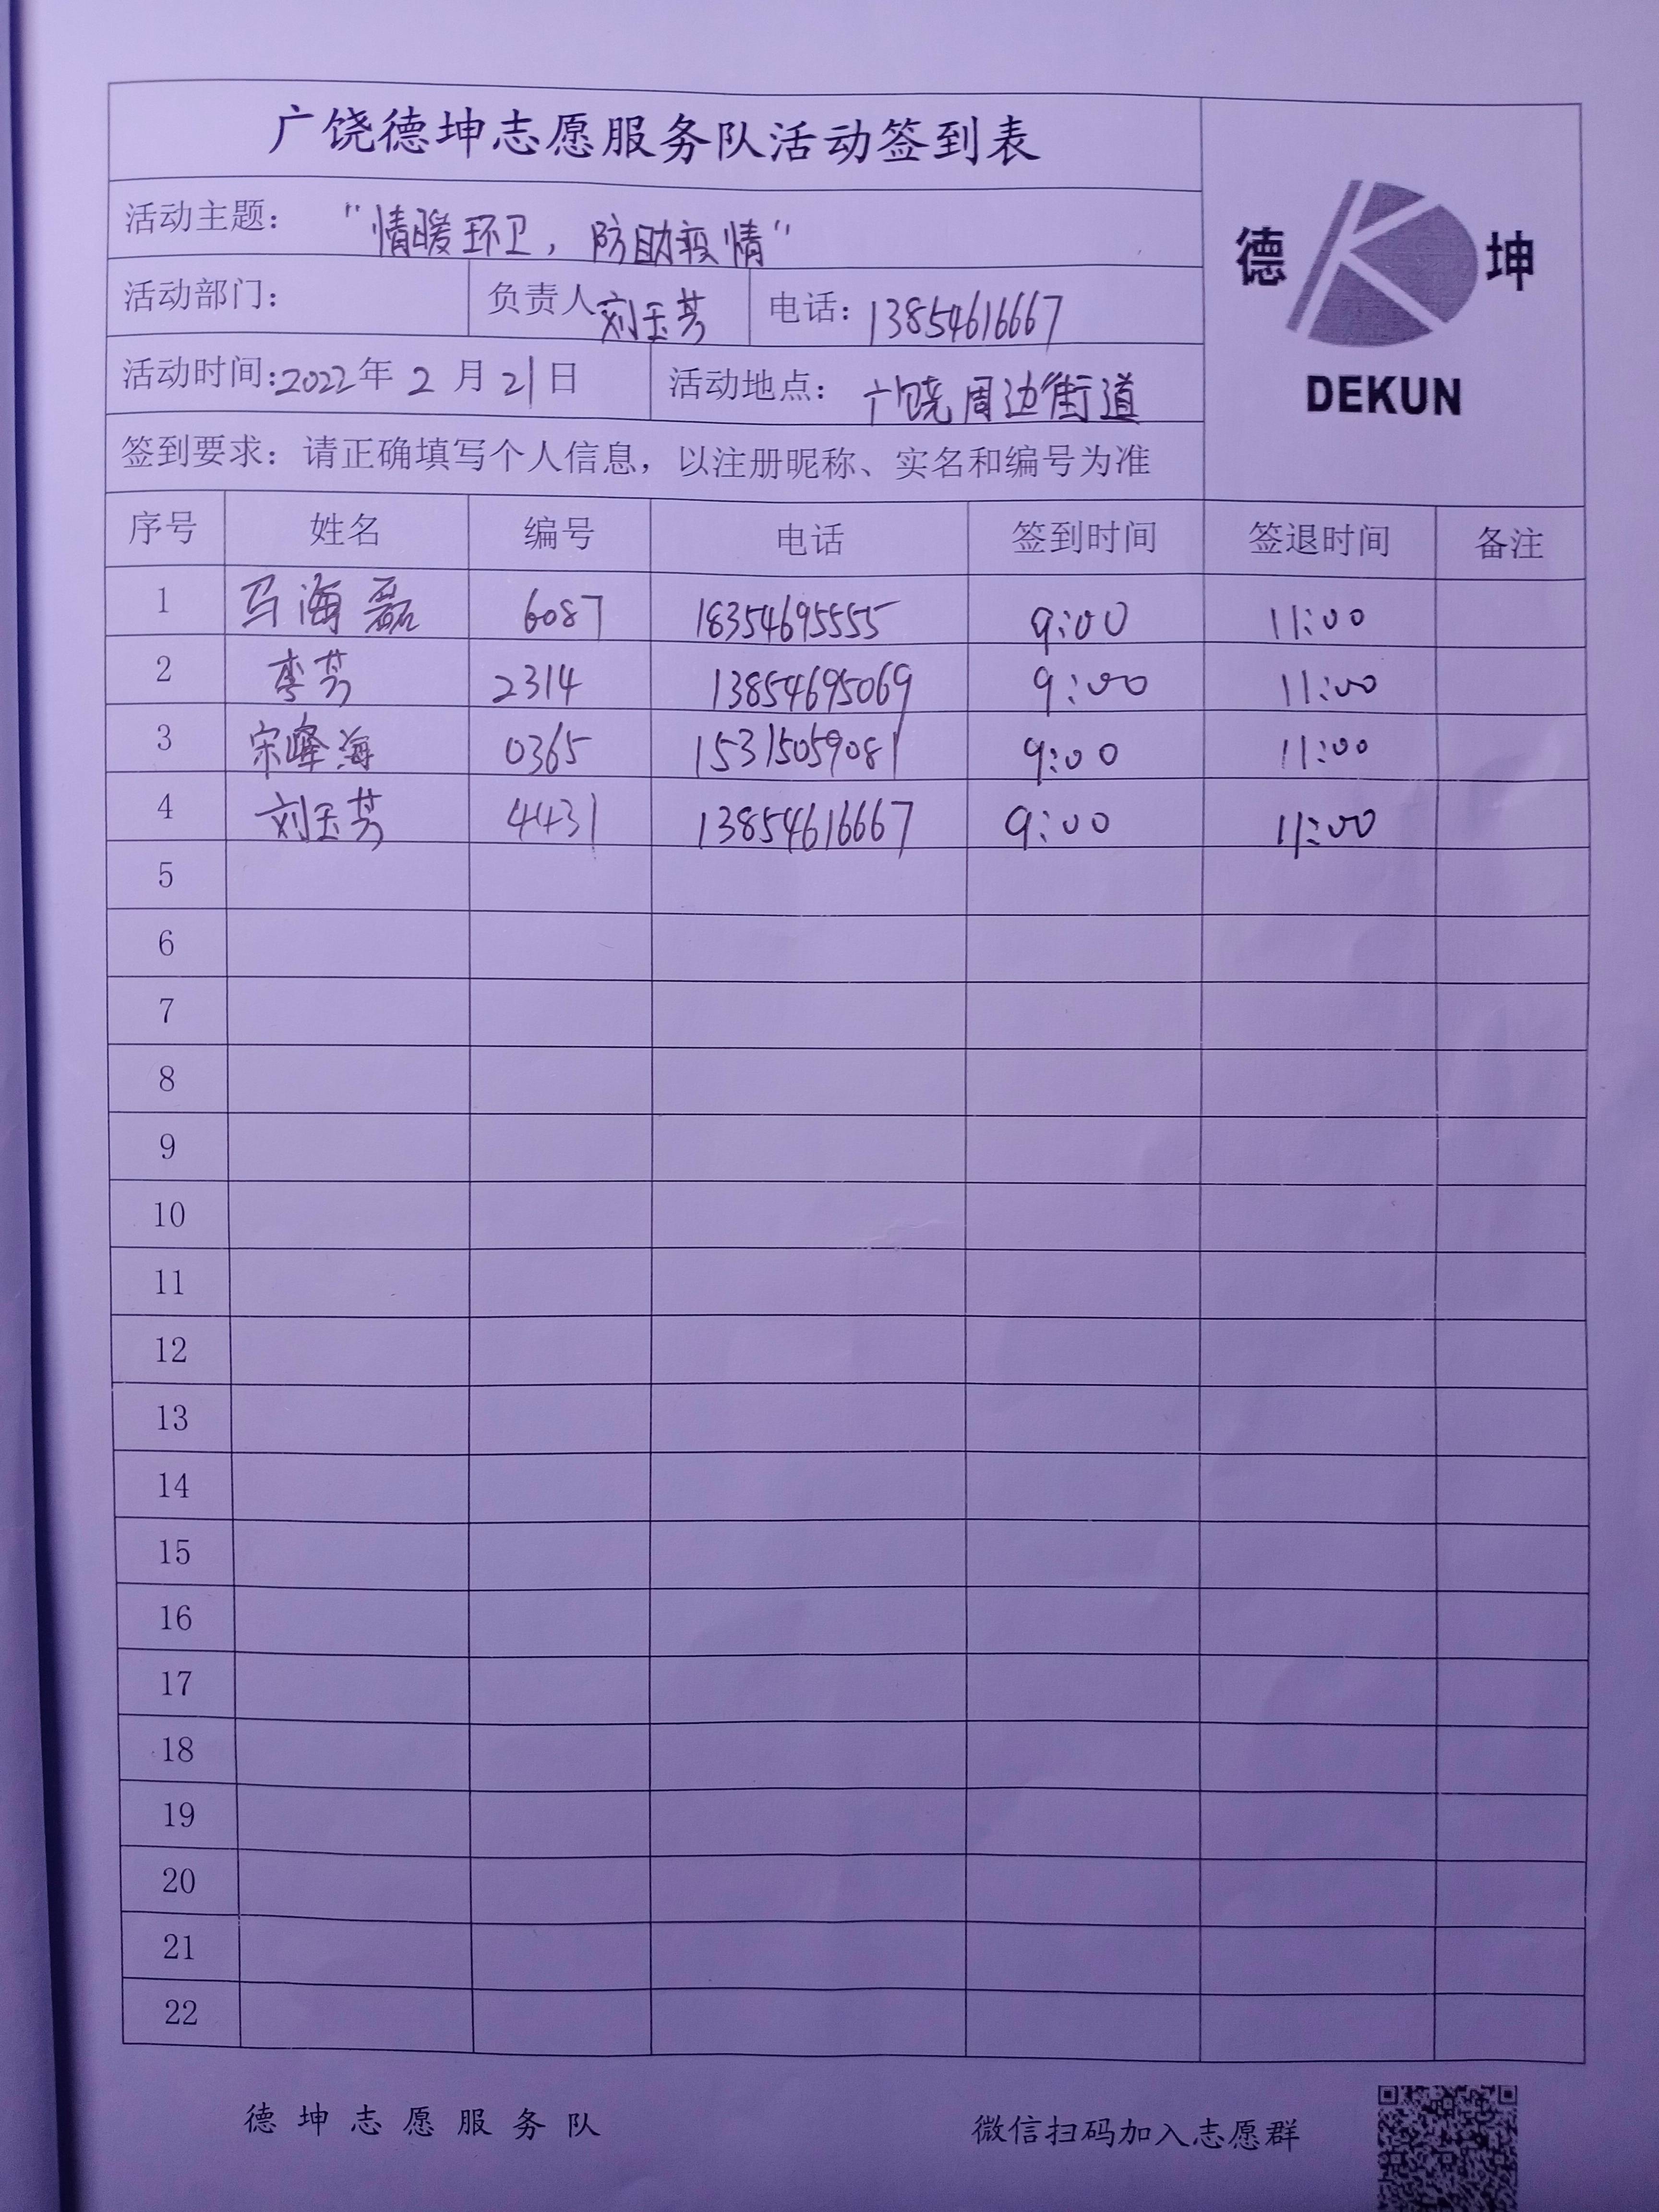 广饶德坤志愿服务队活动签到表
活动主题： "情暖环卫，防助疫情"
活动部门： 负责人 刘玉芳 电话：13854616667
德 坤
活动时间：2022年 2 月 21 日 活动地点： 广饶周边街道
DEKUN
签到要求：请正确填写个人信息，以注册昵称、实名和编号为准
序号 姓名 编号 电话 签到时间 签退时间 备注
1 马海磊 6087 18354695555 9:00 11:00
2 李芳 2314 13854695069 9:00 11:00
3 宋峰海 0365 15315059081 9:00 11:00
4 刘玉芳 4431 13854616667 9:00 11:00
5
6
7
8
9
10
11
12
13
14
15
16
17
18
19
20
21
22
德坤志愿服务队 微信扫码加入志愿群